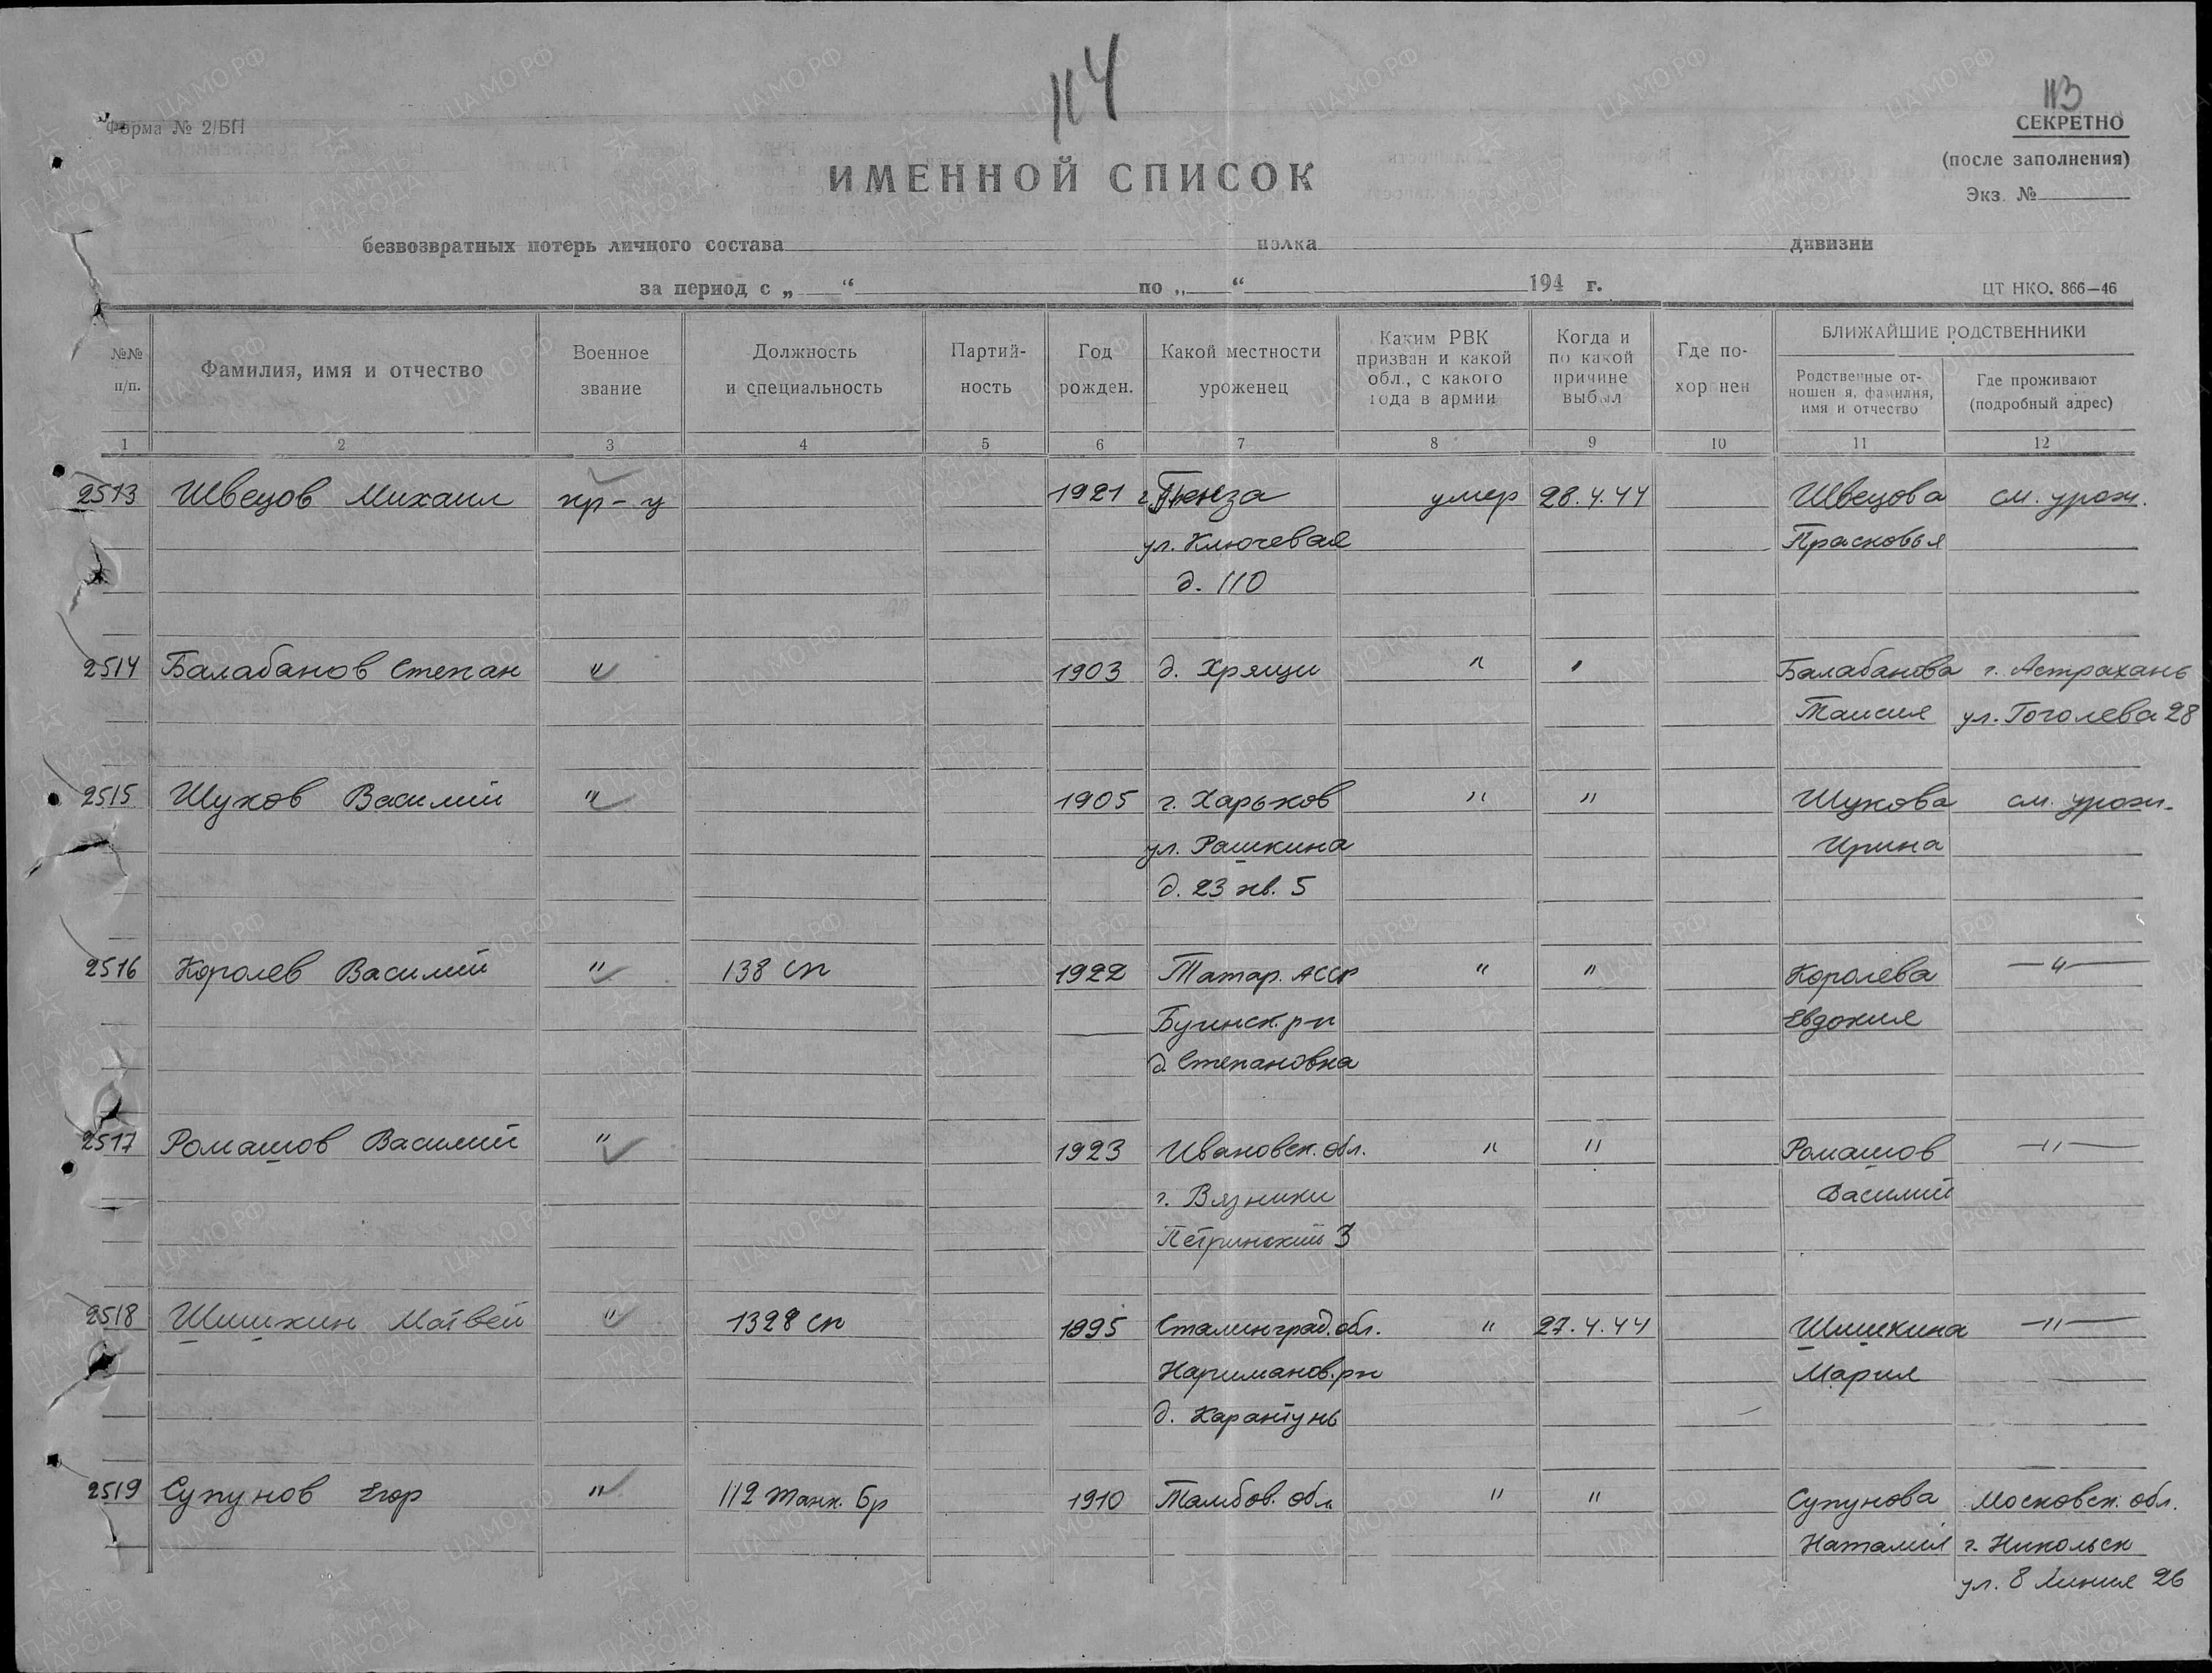 114
113
Форма № 2/БП
СЕКРЕТНО
(после заполнения)
Экз. №
ИМЕННОЙ СПИСОК
безвозвратных потерь личного состава полка дивизии
за период с „ “ по „ “ 194 г.
ЦТ НКО. 866—46
№№ п/п.
Фамилия, имя и отчество
Военное звание
Должность и специальность
Партий-ность
Год рожден.
Какой местности уроженец
Каким РВК призван и какой обл., с какого года в армии
Когда и по какой причине выбыл
Где по-хор нен
БЛИЖАЙШИЕ РОДСТВЕННИКИ
Родственные от-ношен я, фамилия, имя и отчество
Где проживают (подробный адрес)
1 2 3 4 5 6 7 8 9 10 11 12
2513 Швецов Михаил кр-ц 1921 г. Пенза умер 28.4.44 Швецова см. урож.
ул. Ключевая Прасковья
д. 110
2514 Балабанов Степан " 1903 д. Хрящи " " Балабанова г. Астрахань
Таисия ул. Гоголева 28
2515 Шухов Василий " 1905 г. Харьков " " Шухова см. урож.
ул. Рашкина Ирина
д. 23 кв. 5
2516 Королев Василий " 138 сп 1922 Татар. АССР " " Королева —"—
Буинск. р-н Евдокия
д. Степановка
2517 Ромашов Василий " 1923 Ивановск. обл. " " Ромашов —"—
г. Вязники Василий
Петринский 3
2518 Шишкин Матвей " 1328 сп 1895 Сталинград. обл. " 27.4.44 Шишкина —"—
Нариманов. рн Мария
д. Карантунь
2519 Супунов Егор " 112 танк. бр 1910 Тамбов. обл. " " Супунова Московск. обл.
Наталия г. Никольск
ул. 8 Линия 26